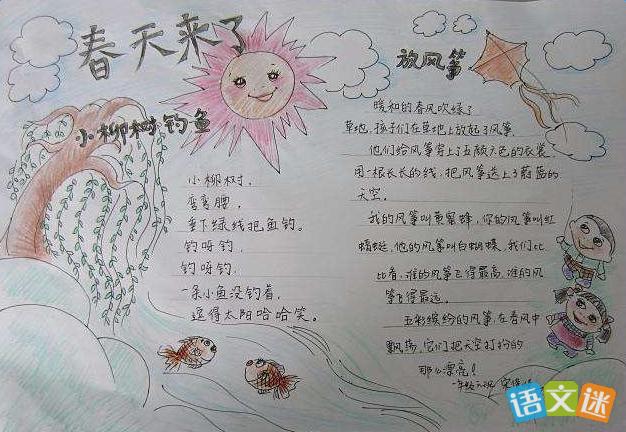 春天来了
小柳树钓鱼
小柳树，
弯弯腰，
垂下绿线把鱼钓。
钓呀钓，
钓呀钓，
一条小鱼没钓着，
逗得太阳哈哈笑。
放风筝
暖和的春风吹绿了
草地，孩子们在草地上放起了风筝。
他们给风筝穿上了五颜六色的衣裳，
用一根长长的线，把风筝送上了蔚蓝的
天空。
我的风筝叫黄蜜蜂，你的风筝叫红
蜻蜓，他的风筝叫白蝴蝶，我们比
比看，谁的风筝飞得最高，谁的风
筝飞得最远。
五彩缤纷的风筝，在春风中
飘荡，它们把天空打扮的
那么漂亮！
语文迷